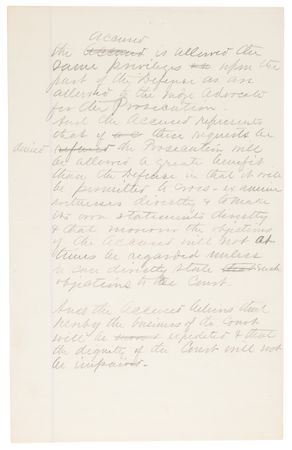 Accused
the Accused is allowed the
same privileges on upon the
part of the Defense as are
allowed to the Judge Advocate
for the Prosecution.
And the Accused represents
that if these requests be
denied refused the Prosecution will
be allowed a greater benefit
than the Defense in that it will
be permitted to cross-examine
witnesses directly & to make
its own statements directly
& that moreover the objections
of the Accused will not at
times be regarded unless
he can directly state such
objections to the Court.
And the Accused believes that
hereby the business of the Court
will be expedited & that
the dignity of the Court will not
be impaired.